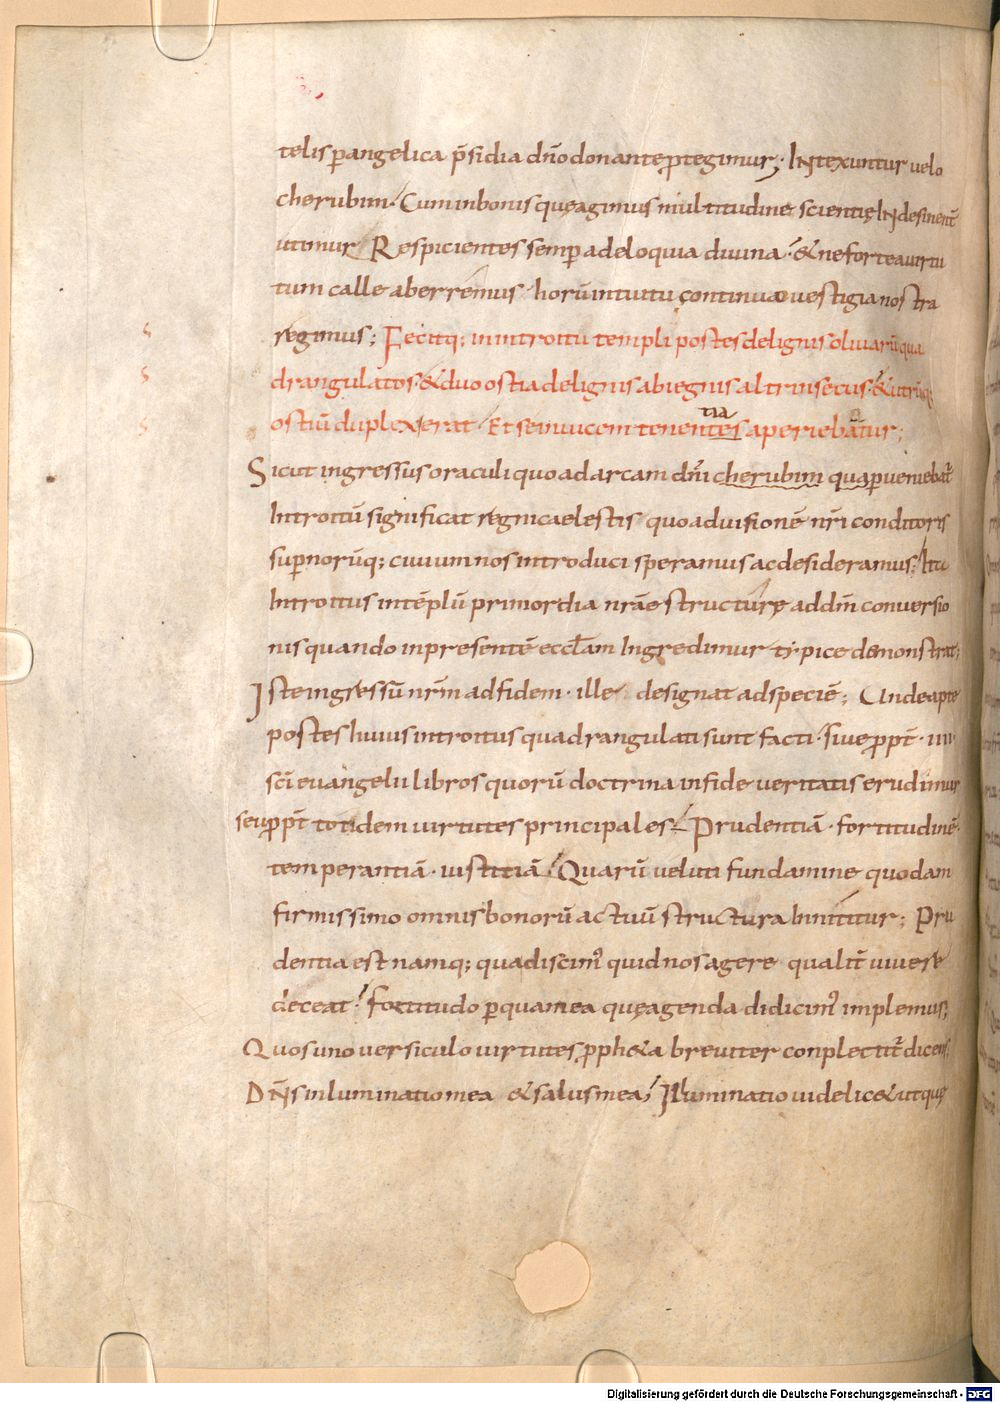 telis ꝑangelica p̄sidia dn̄o donante ꝓtegimur; Intexuntur velo
cherubim. Cum in bonis quę agimus multitudine scientię indesinent̄
utimur Respicientes semꝑ ad eloquia divina. & ne forte a virtu
tum calle aberremus horū intuitu continuae vestigia nostra
regimus; Fecitq; in introitu templi postes de lignis olivarū qua
drangulatos. & duo ostia de lignis abiegnis altrinsecus. & utrūq;
ostiū duplex erat Et se invicem tenentes aperiebatur;
tia
Sicut ingressus oraculi quo ad arcam dn̄i cherubim qua ꝑveniebat̄
Introitū significat regni caelestis quo ad visionē nr̄i conditoris
suꝑnorūq; civium nos introduci speramus ac desideramus; Ita
Introitus in tēplū primordia nr̄ae structurę ad dm̄ conversio
nis quando in presentē eccl̄am Ingredimur typice demonstrat;
Iste ingressū nr̄m ad fidem. ille designat ad speciē; Unde apte
postes huius introitus quadrangulati sunt facti. sive ꝓpt̄. iiii
sc̄i evangelii libros quorū doctrina in fide veritatis erudimur
seu ꝓpt̄ totidem virtutes principales Prudentiā. fortitudinē.
temperantiā. iustitiā. Quarū veluti fundamine quodam
firmissimo omnis bonorū actuū structura Innititur; Pru
dentia est namq; qua discim' quid nos agere qualit̄ vivere
deceat. fortitudo ꝑ quam ea quę agenda didicim' implemus;
Quos uno versiculo virtutes ꝓph&a breviter conplectit̄ dicens
Dn̄s inluminatio mea & salus mea; Illuminatio videlic& ut quę
Digitalisierung gefördert durch die Deutsche Forschungsgemeinschaft - DFG